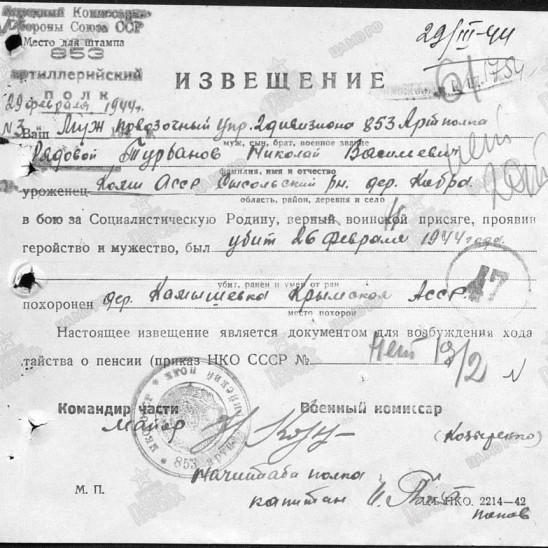 Народный Комиссариат
Обороны Союза ССР
Место для штампа
853
артиллерийский
ПОЛК
29 февраля 1944г.
№3
29/III-44
ИЗВЕЩЕНИЕ
Ваш муж повозочный упр. 2 дивизиона 853 Артполка
муж, сын, брат, военное звание
Рядовой Турбанов Николай Васильевич
фамилия, имя и отчество
уроженец Коми АССР Сысольский рн. дер. Кибра
область, район, деревня и село
в бою за Социалистическую Родину, верный воинской присяге, проявив
геройство и мужество, был убит 26 февраля 1944 года.
убит, ранен и умер от ран
похоронен дер. Камышевка Крымской АССР
место похорон
47
Настоящее извещение является документом для возбуждения хода
тайства о пенсии (приказ НКО СССР №
Командир части
Военный комиссар
майор
(Козыренко)
853
Начштаба полка
капитан
М. П.
НКО. 2214—42
Попов